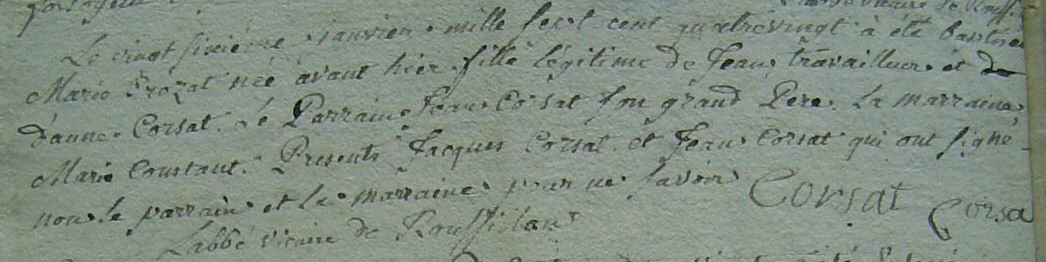 Le vingt sixième janvier mille sept cent quatrevingt à été batisée
Marie Frozat née avant hier fille légitime de Jean travailleur et de
d'anne Corsat. Le Parrain Jean Corsat son grand Père. La marraine
Marie Constant. Presents Jacques Corsat et Jean Corsat qui ont signé
non le parrain et la marraine pour ne savoir Corsat Corsa
Labbé vicaire de Roussillon